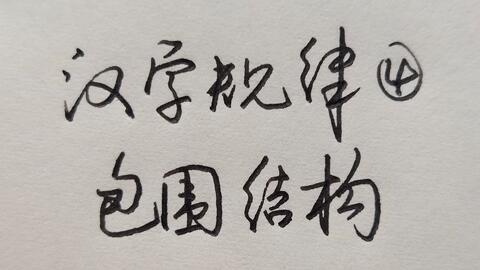 汉字规律④
包围结构